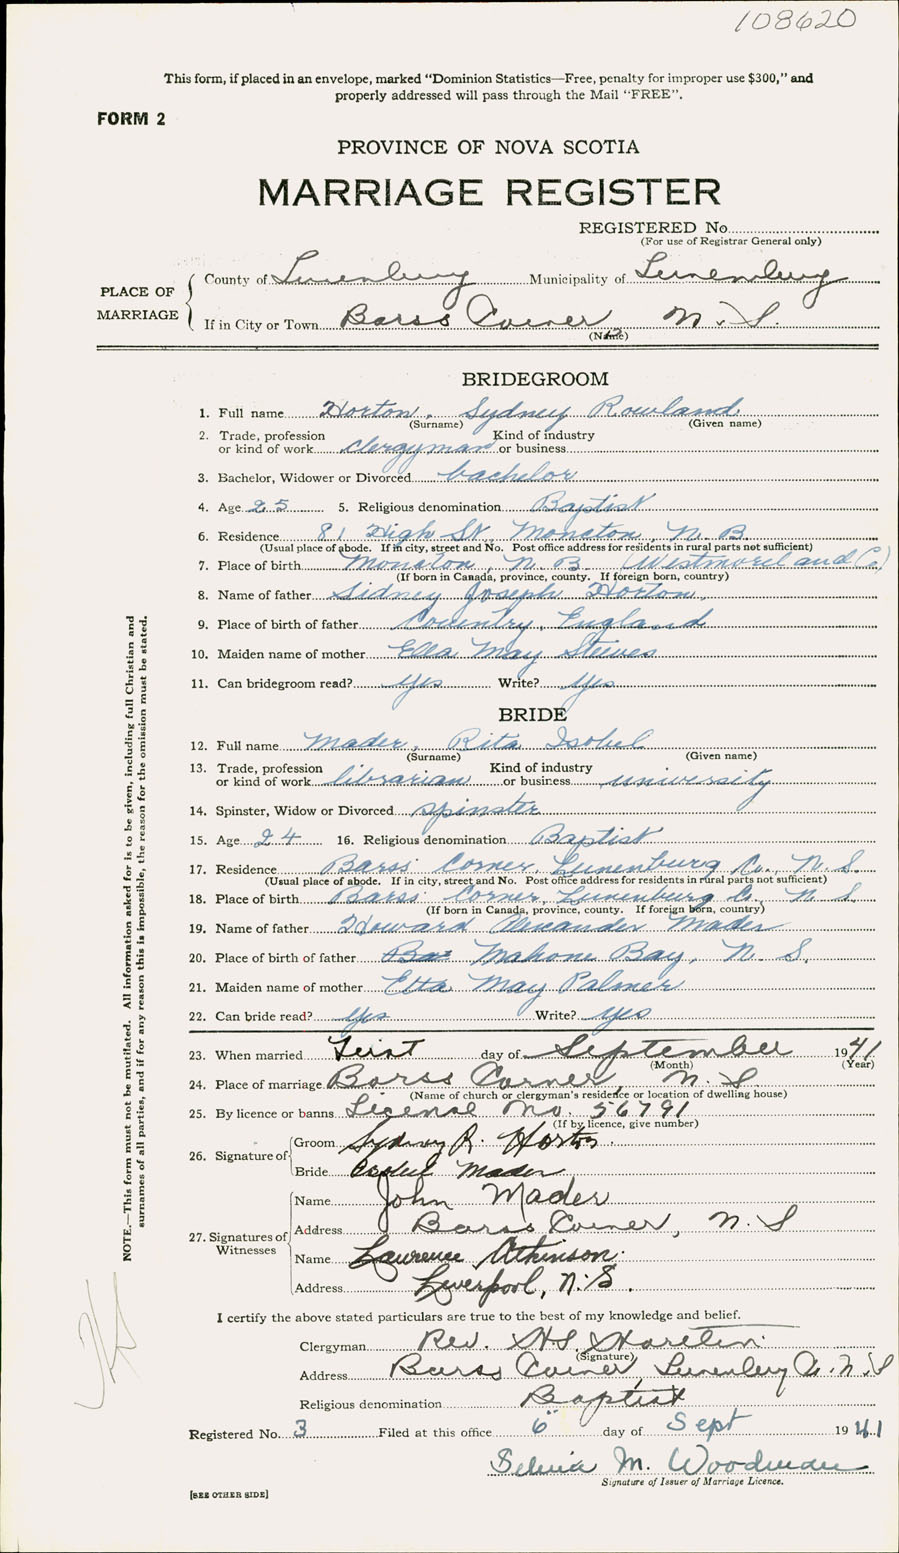 108620
This form, if placed in an envelope, marked “Dominion Statistics—Free, penalty for improper use $300,” and
properly addressed will pass through the Mail “FREE”.
FORM 2
PROVINCE OF NOVA SCOTIA
MARRIAGE REGISTER
REGISTERED No.
(For use of Registrar General only)
PLACE OF MARRIAGE
County of Lunenburg Municipality of Lunenburg
If in City or Town Barss Corner N.S.
(Name)
BRIDEGROOM
1. Full name Horton, Sydney Rowland
(Surname) (Given name)
2. Trade, profession Kind of industry
or kind of work clergyman or business
3. Bachelor, Widower or Divorced bachelor
4. Age 25 5. Religious denomination Baptist
6. Residence 81 High St, Moncton, N.B.
(Usual place of abode. If in city, street and No. Post office address for residents in rural parts not sufficient)
7. Place of birth Moncton, N.B. (Westmoreland Co.)
(If born in Canada, province, county. If foreign born, country)
8. Name of father Sidney Joseph Horton
9. Place of birth of father Coventry, England
10. Maiden name of mother Ella May Steeves
11. Can bridegroom read? yes Write? yes
BRIDE
12. Full name Mader, Rita Isobel
(Surname) (Given name)
13. Trade, profession Kind of industry
or kind of work librarian or business university
14. Spinster, Widow or Divorced spinster
15. Age 24 16. Religious denomination Baptist
17. Residence Barss' Corner, Lunenburg Co., N.S.
(Usual place of abode. If in city, street and No. Post office address for residents in rural parts not sufficient)
18. Place of birth Barss' Corner, Lunenburg Co. N.S.
(If born in Canada, province, county. If foreign born, country)
19. Name of father Howard Alexander Mader
20. Place of birth of father Bar Mahone Bay, N.S.
21. Maiden name of mother Etta May Palmer
22. Can bride read? yes Write? yes
23. When married First day of September 1941
(Month) (Year)
24. Place of marriage Barss Corner, N.S.
(Name of church or clergyman's residence or location of dwelling house)
25. By licence or banns License No. 56791
(If by licence, give number)
26. Signature of
Groom Sydney R. Horton
Bride Isobel Mader
27. Signatures of Witnesses
Name John Mader
Address Barss Corner, N.S
Name Lawrence Atkinson
Address Liverpool, N.S.
I certify the above stated particulars are true to the best of my knowledge and belief.
Clergyman Rev. H.S.
(Signature)
Address Barss Corner, Lunenburg Co. N.S
Religious denomination Baptist
Registered No. 3 Filed at this office 6" day of Sept 1941
M. Woodman
Signature of Issuer of Marriage Licence.
[SEE OTHER SIDE]
NOTE.—This form must not be mutilated. All information asked for is to be given, including full Christian and
surnames of all parties, and if for any reason this is impossible, the reason for the omission must be stated.